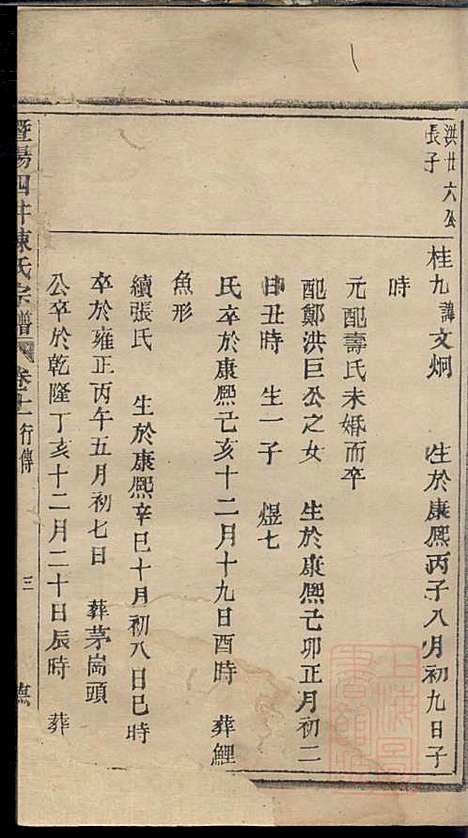 洪廿六公
長子
桂九諱文炯　生於康熙丙子八月初九日子
時
元配壽氏未婚而卒
配鄭洪巨公之女　生於康熙己卯正月初二
日丑時　生一子　煜七
氏卒於康熙己亥十二月十九日酉時　葬鯉
魚形
續張氏　生於康熙辛巳十月初八日巳時
卒於雍正丙午五月初七日　葬茅崗頭
公卒於乾隆丁亥十二月二十日辰時　葬
暨陽四井陳氏宗譜　卷十一行傳　三